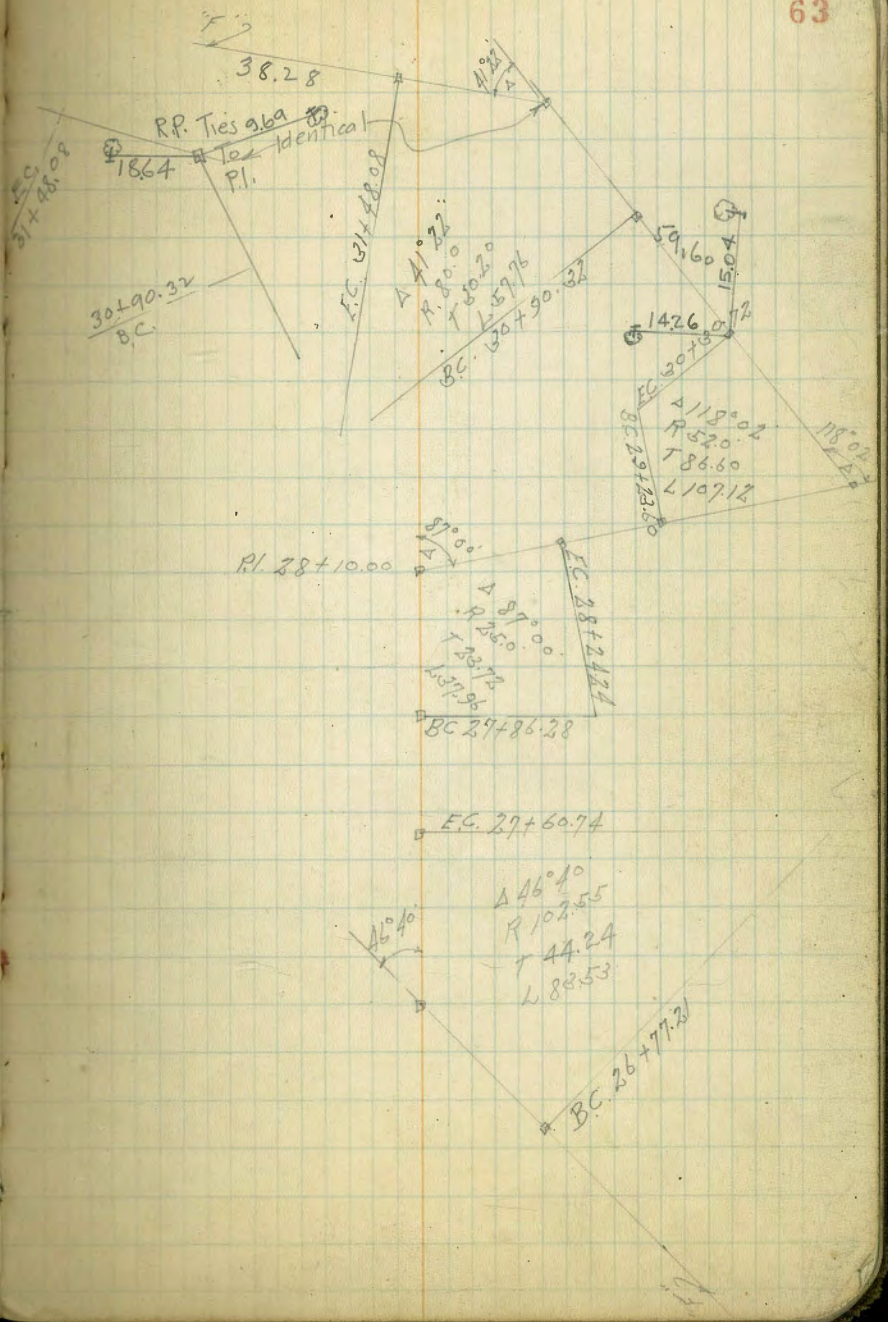 63
"F"
38.28
41°22'
Δ
R.P. Ties 9.69
To Identical
18.64
P.I.
E.C.
31+48.08
30+90.32
B.C.
E.C. 31+48.08
Δ 41°22'
R. 80.0
T 30.20
L 57.76
B.C. 30+90.32
59.60
15.04
14.26
E.C. 30+30.72
B.C. 29+23.60
Δ 118°02
R 52.0
T 86.60
L 107.12
118°02'
Δ
87°00'
Δ
P.I. 28+10.00
E.C. 28+24.24
Δ 87°00'
R 25.0
T 23.72
L 37.96
BC 27+86.28
E.C. 27+60.74
Δ 46°40
R 102.55
T 44.24
L 83.53
46°40'
B.C. 26+77.21